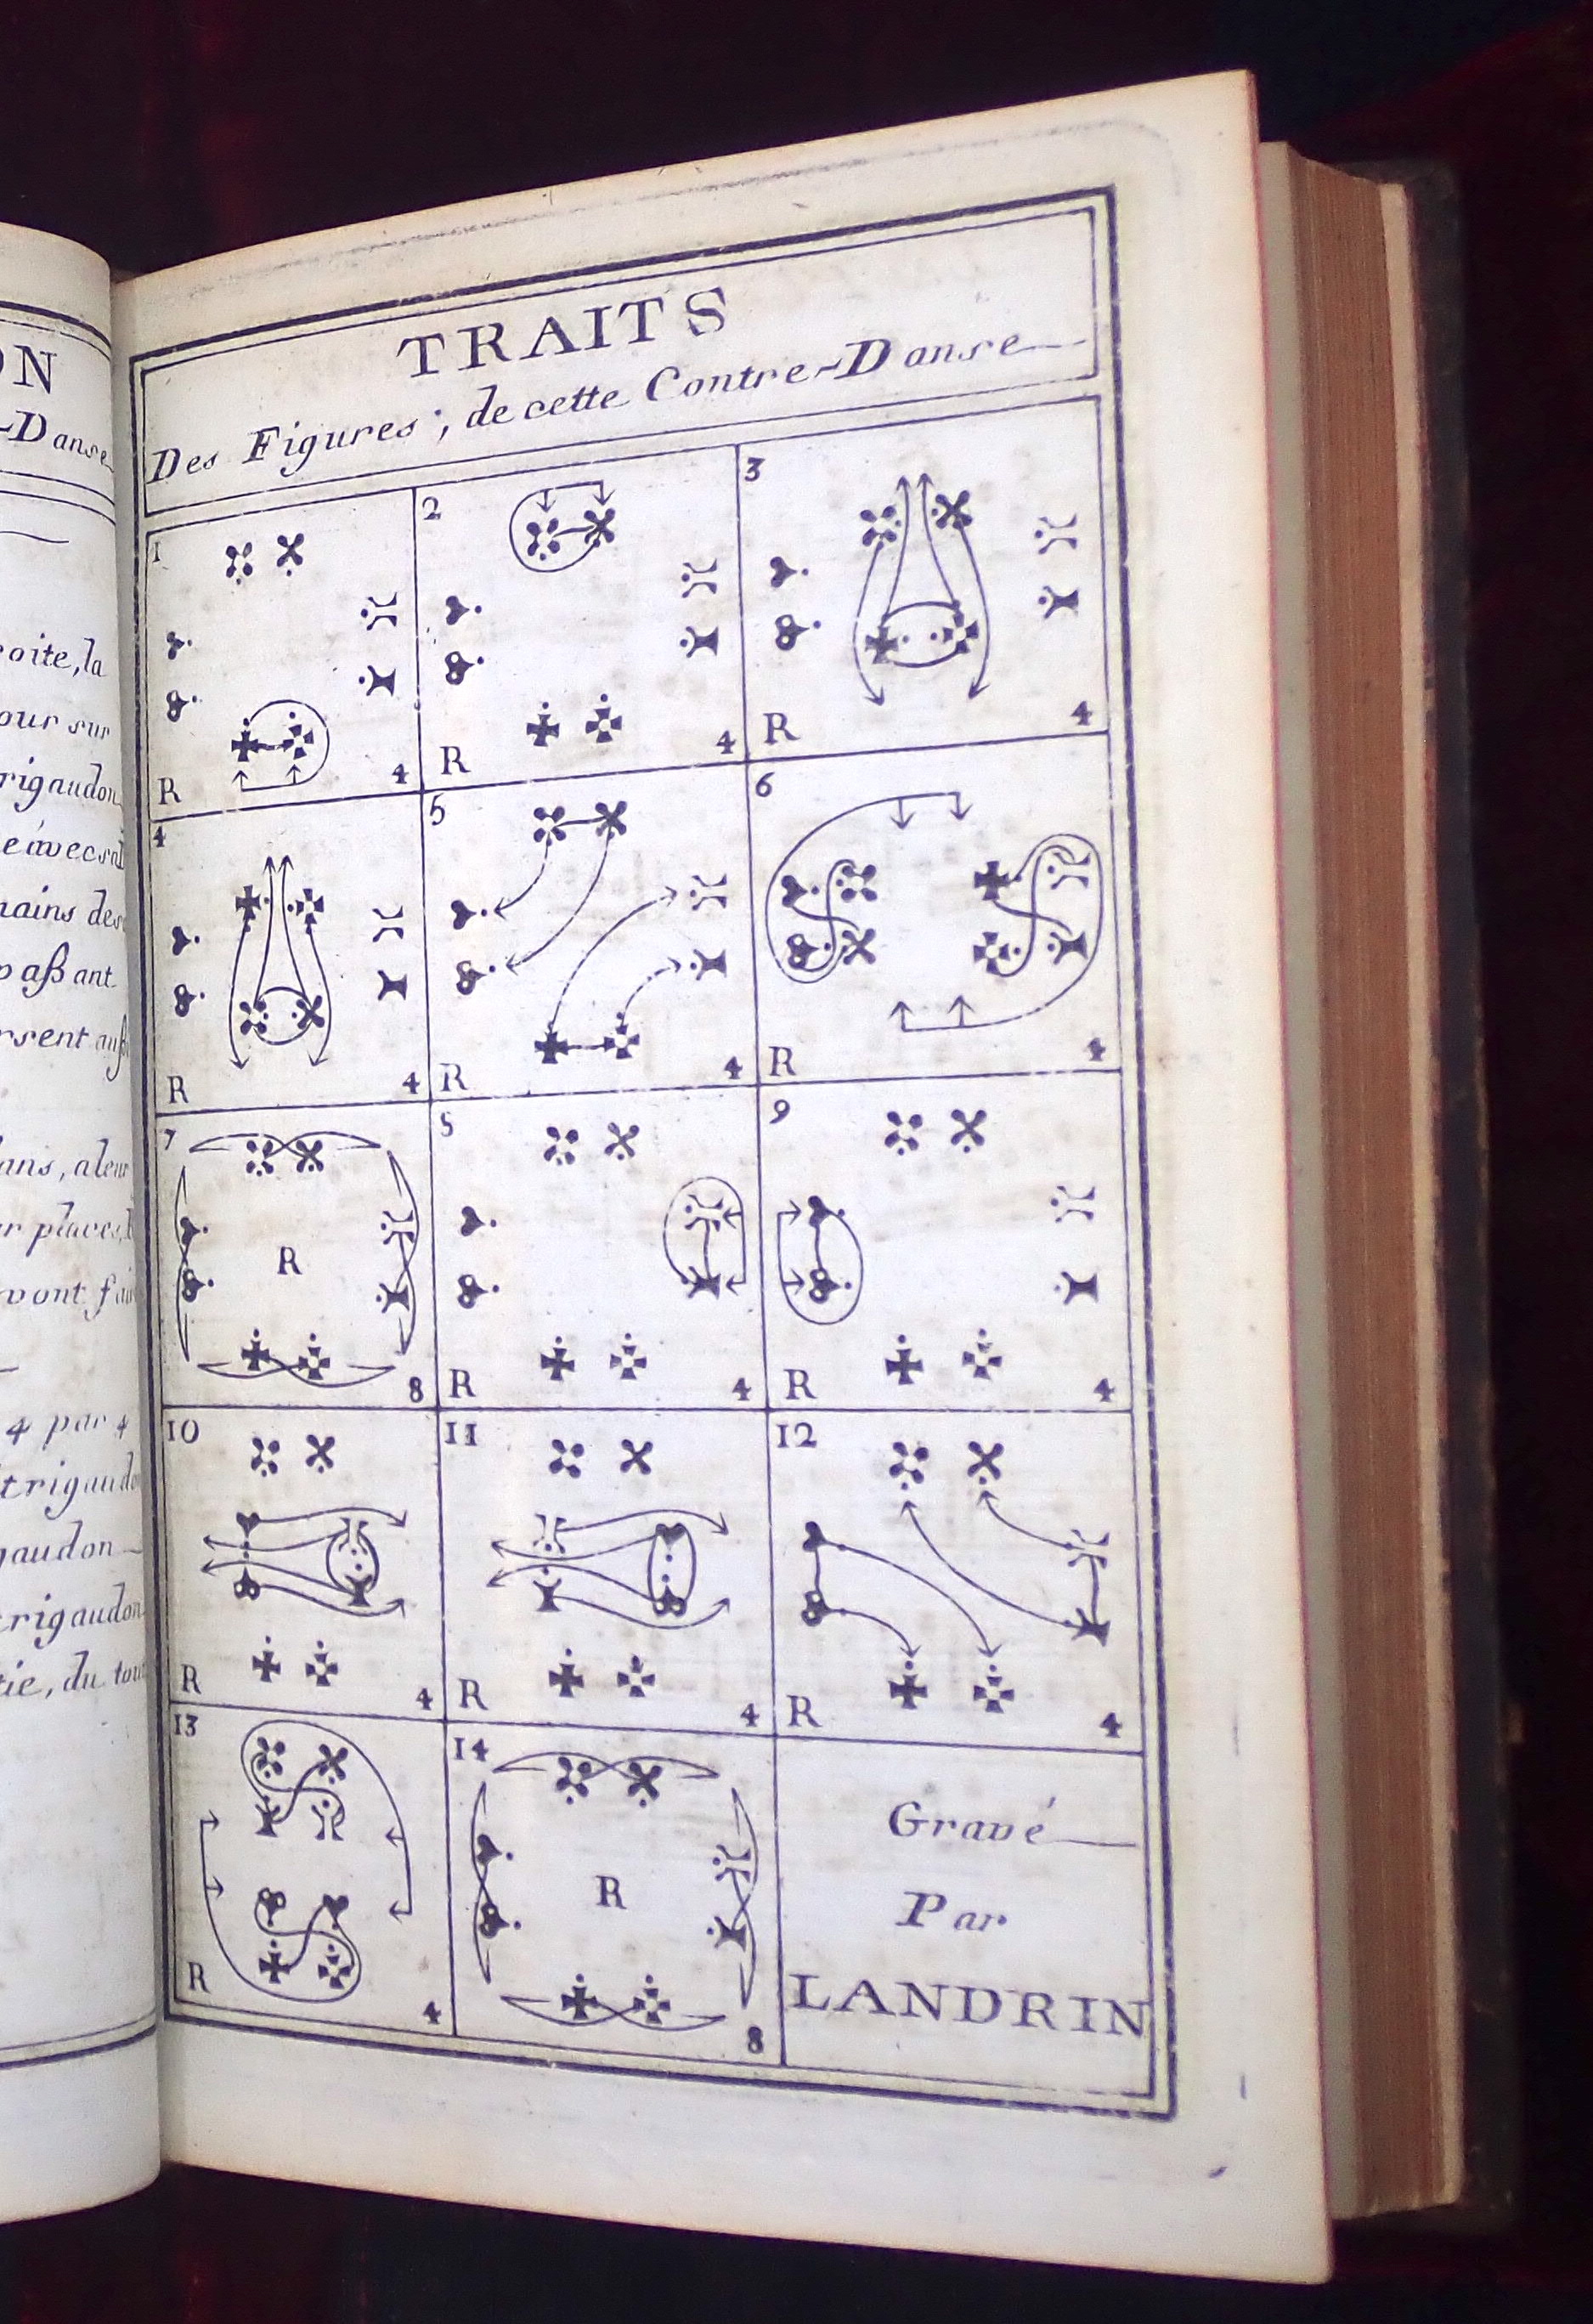 ON
-Danse
oite, la
our sur
rigaudon
mains des
paßant
rsent
ans, a leur
r places,
vont
4 par 4
trigaudon
gaudon
rigaudon
tie, du tout
TRAITS
Des Figures; de cette Contre-Danse
1
R 4
2
R 4
3
R 4
4
R 4
5
R 4
6
R 4
7
R
8
8
R 4
9
R 4
10
R 4
11
R 4
12
R 4
13
R 4
14
R
8
Gravé
Par
LANDRIN